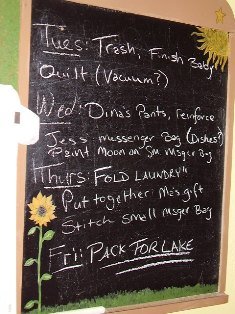 Tues: Trash, Finish Baby
Quilt (Vacuum?)
Wed: Dina's Pants, reinforce
Jess messenger Bag (Dishes?)
Paint Moon on Sm Msger Bag
Thurs: FOLD LAUNDRY"
Put together Ma's gift
Stitch small Msger Bag
Fri: PACK FOR LAKE